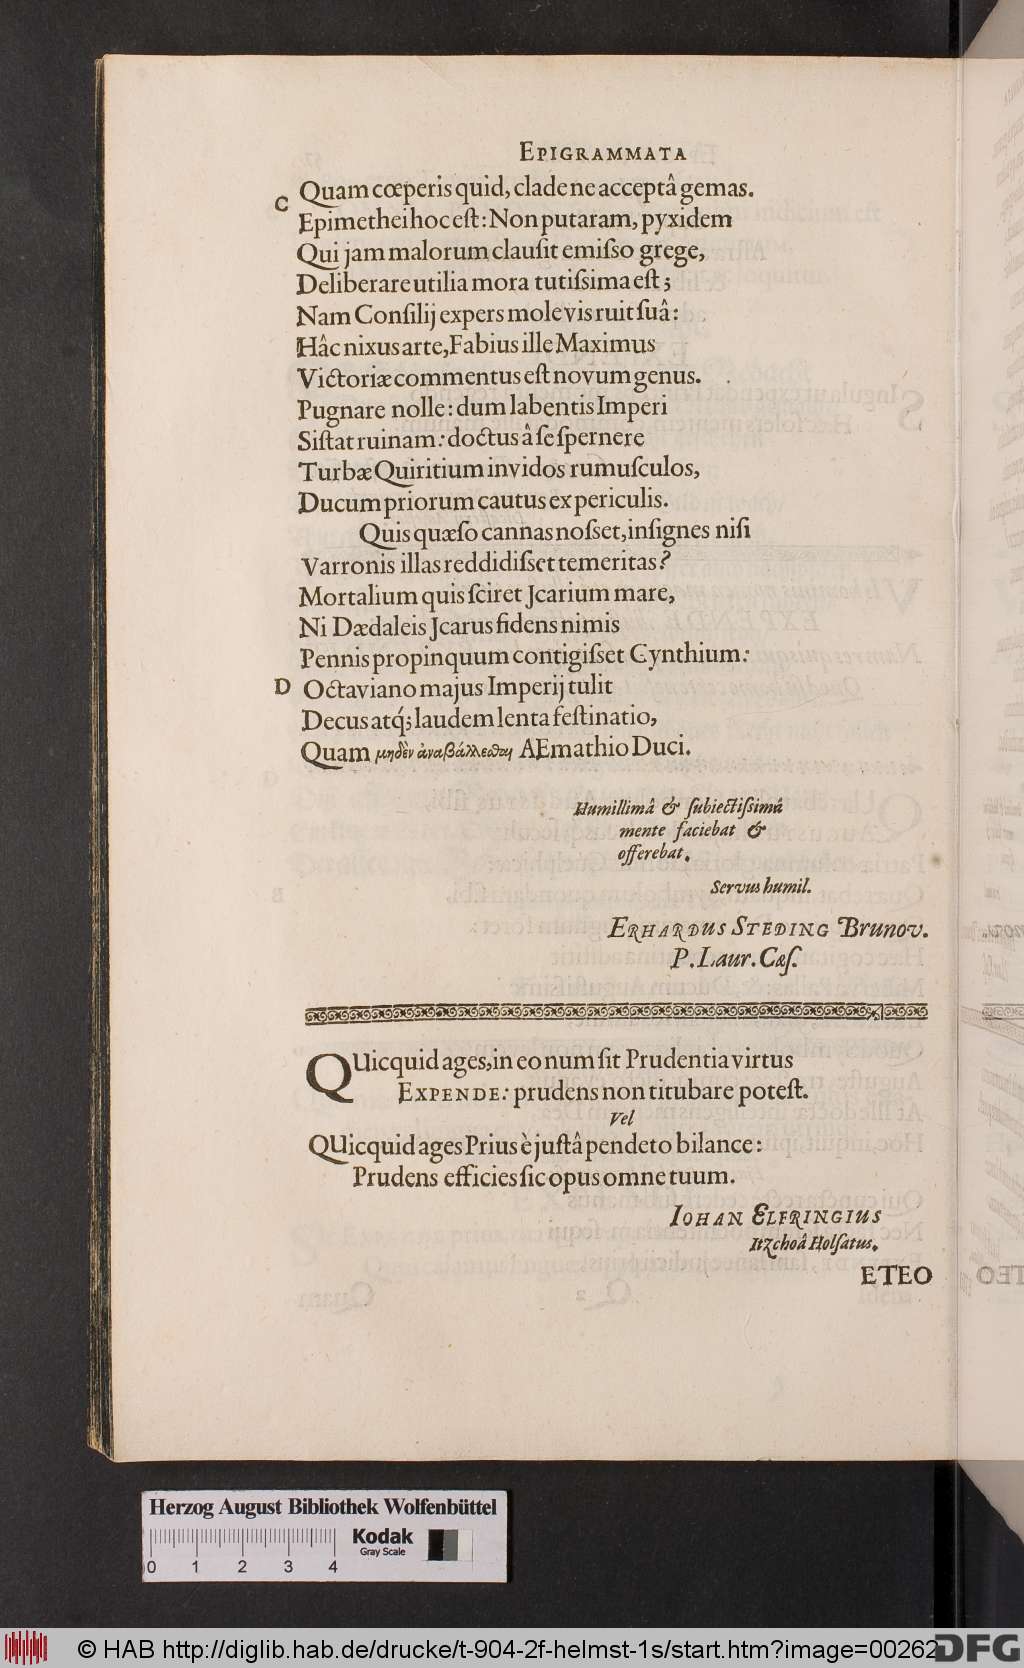 EPIGRAMMATA
Quam cœperis quid, clade ne acceptâ gemas.
C
Epimethei hoc eſt: Non putaram, pyxidem
Qui jam malorum clauſit emiſso grege,
Deliberare utilia mora tutiſsima eſt;
Nam Conſilij expers mole vis ruit ſuâ:
Hâc nixus arte, Fabius ille Maximus
Victoriæ commentus eſt novum genus.
Pugnare nolle: dum labentis Imperi
Siſtat ruinam: doctus â ſe ſpernere
Turbæ Quiritium invidos rumuſculos,
Ducum priorum cautus ex periculis.
Quis quæſo cannas noſset, inſignes niſi
Varronis illas reddidiſset temeritas?
Mortalium quis ſciret Jcarium mare,
Ni Dædaleis Jcarus fidens nimis
Pennis propinquum contigiſset Cynthium:
D Octaviano majus Imperij tulit
Decus atq́; laudem lenta feſtinatio,
Quam μηδὲν ἀναβάλλεσθαι AEmathio Duci.
Humillimâ & ſubiectiſsimâ
mente faciebat &
offerebat.
Servus humil.
ERHARDUS STEDING Brunov.
P. Laur. Cæſ.
QUicquid ages, in eo num ſit Prudentia virtus
EXPENDE: prudens non titubare poteſt.
Vel
QUicquid ages Prius è juſtâ pendeto bilance:
Prudens efficies ſic opus omne tuum.
IOHAN ELFRINGIUS
Itzchoâ Holſatus.
ETEO
Herzog August Bibliothek Wolfenbüttel
Kodak
Gray Scale
0 1 2 3 4
© HAB http://diglib.hab.de/drucke/t-904-2f-helmst-1s/start.htm?image=00262
DFG